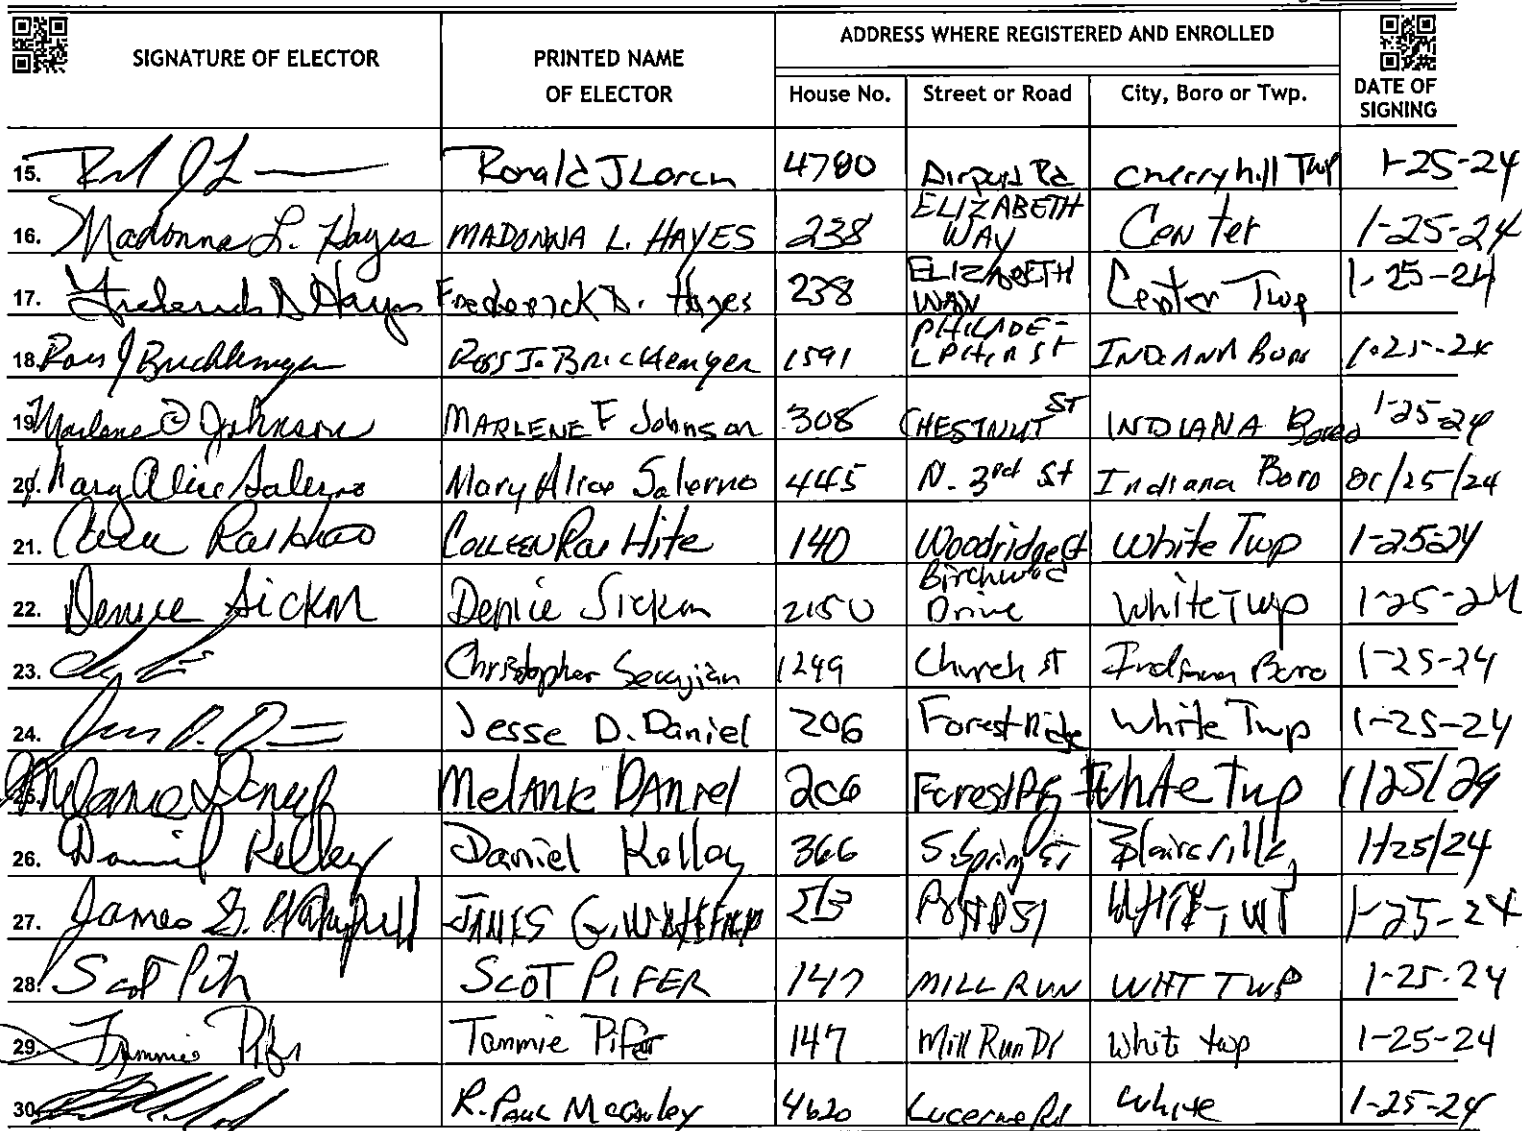 SIGNATURE OF ELECTOR
PRINTED NAME
OF ELECTOR
ADDRESS WHERE REGISTERED AND ENROLLED
House No. Street or Road City, Boro or Twp.
DATE OF
SIGNING
15. Ronald J Loren 4780 Airport Rd Cherryhill Twp 1-25-24
16. Madonna L. Hayes MADONNA L. HAYES 238 ELIZABETH WAY Center 1-25-24
17. Frederick D Hayes Frederick D. Hayes 238 ELIZABETH WAY Center Twp 1-25-24
18. Ross J. Brickemyer 1591 PHILADE-LPHIA ST INDIANA Boro 1-25-24
19. Marlene Johnson MARLENE F Johnson 308 CHESTNUT ST INDIANA Boro 1-25-24
20. Mary Alice Salerno Mary Alice Salerno 445 N. 3rd St Indiana Boro 01/25/24
21. COLLEEN Rae Hite 140 Woodridge Ct White Twp 1-25-24
22. Denice Denice 2150 Birchwood Drive White Twp 1-25-24
23. Christopher 1249 Church ST Indiana Boro 1-25-24
24. Jesse D. Daniel 206 Forest Ridge White Twp 1-25-24
25. Melanie Daniel Melanie Daniel 206 Forest White Twp 1/25/24
26. Daniel Kelley Daniel Kelley 366 S. Spring ST Blairsville 1/25/24
27. James G. JAMES G. 1-25-24
28. Scot SCOT PIFER 147 MILL RUN WHT TWP 1-25-24
29. Tammie Pifer Tammie Pifer 147 Mill Run Dr White twp 1-25-24
30. R. Paul McCauley 4620 Lucerne Rd White 1-25-24